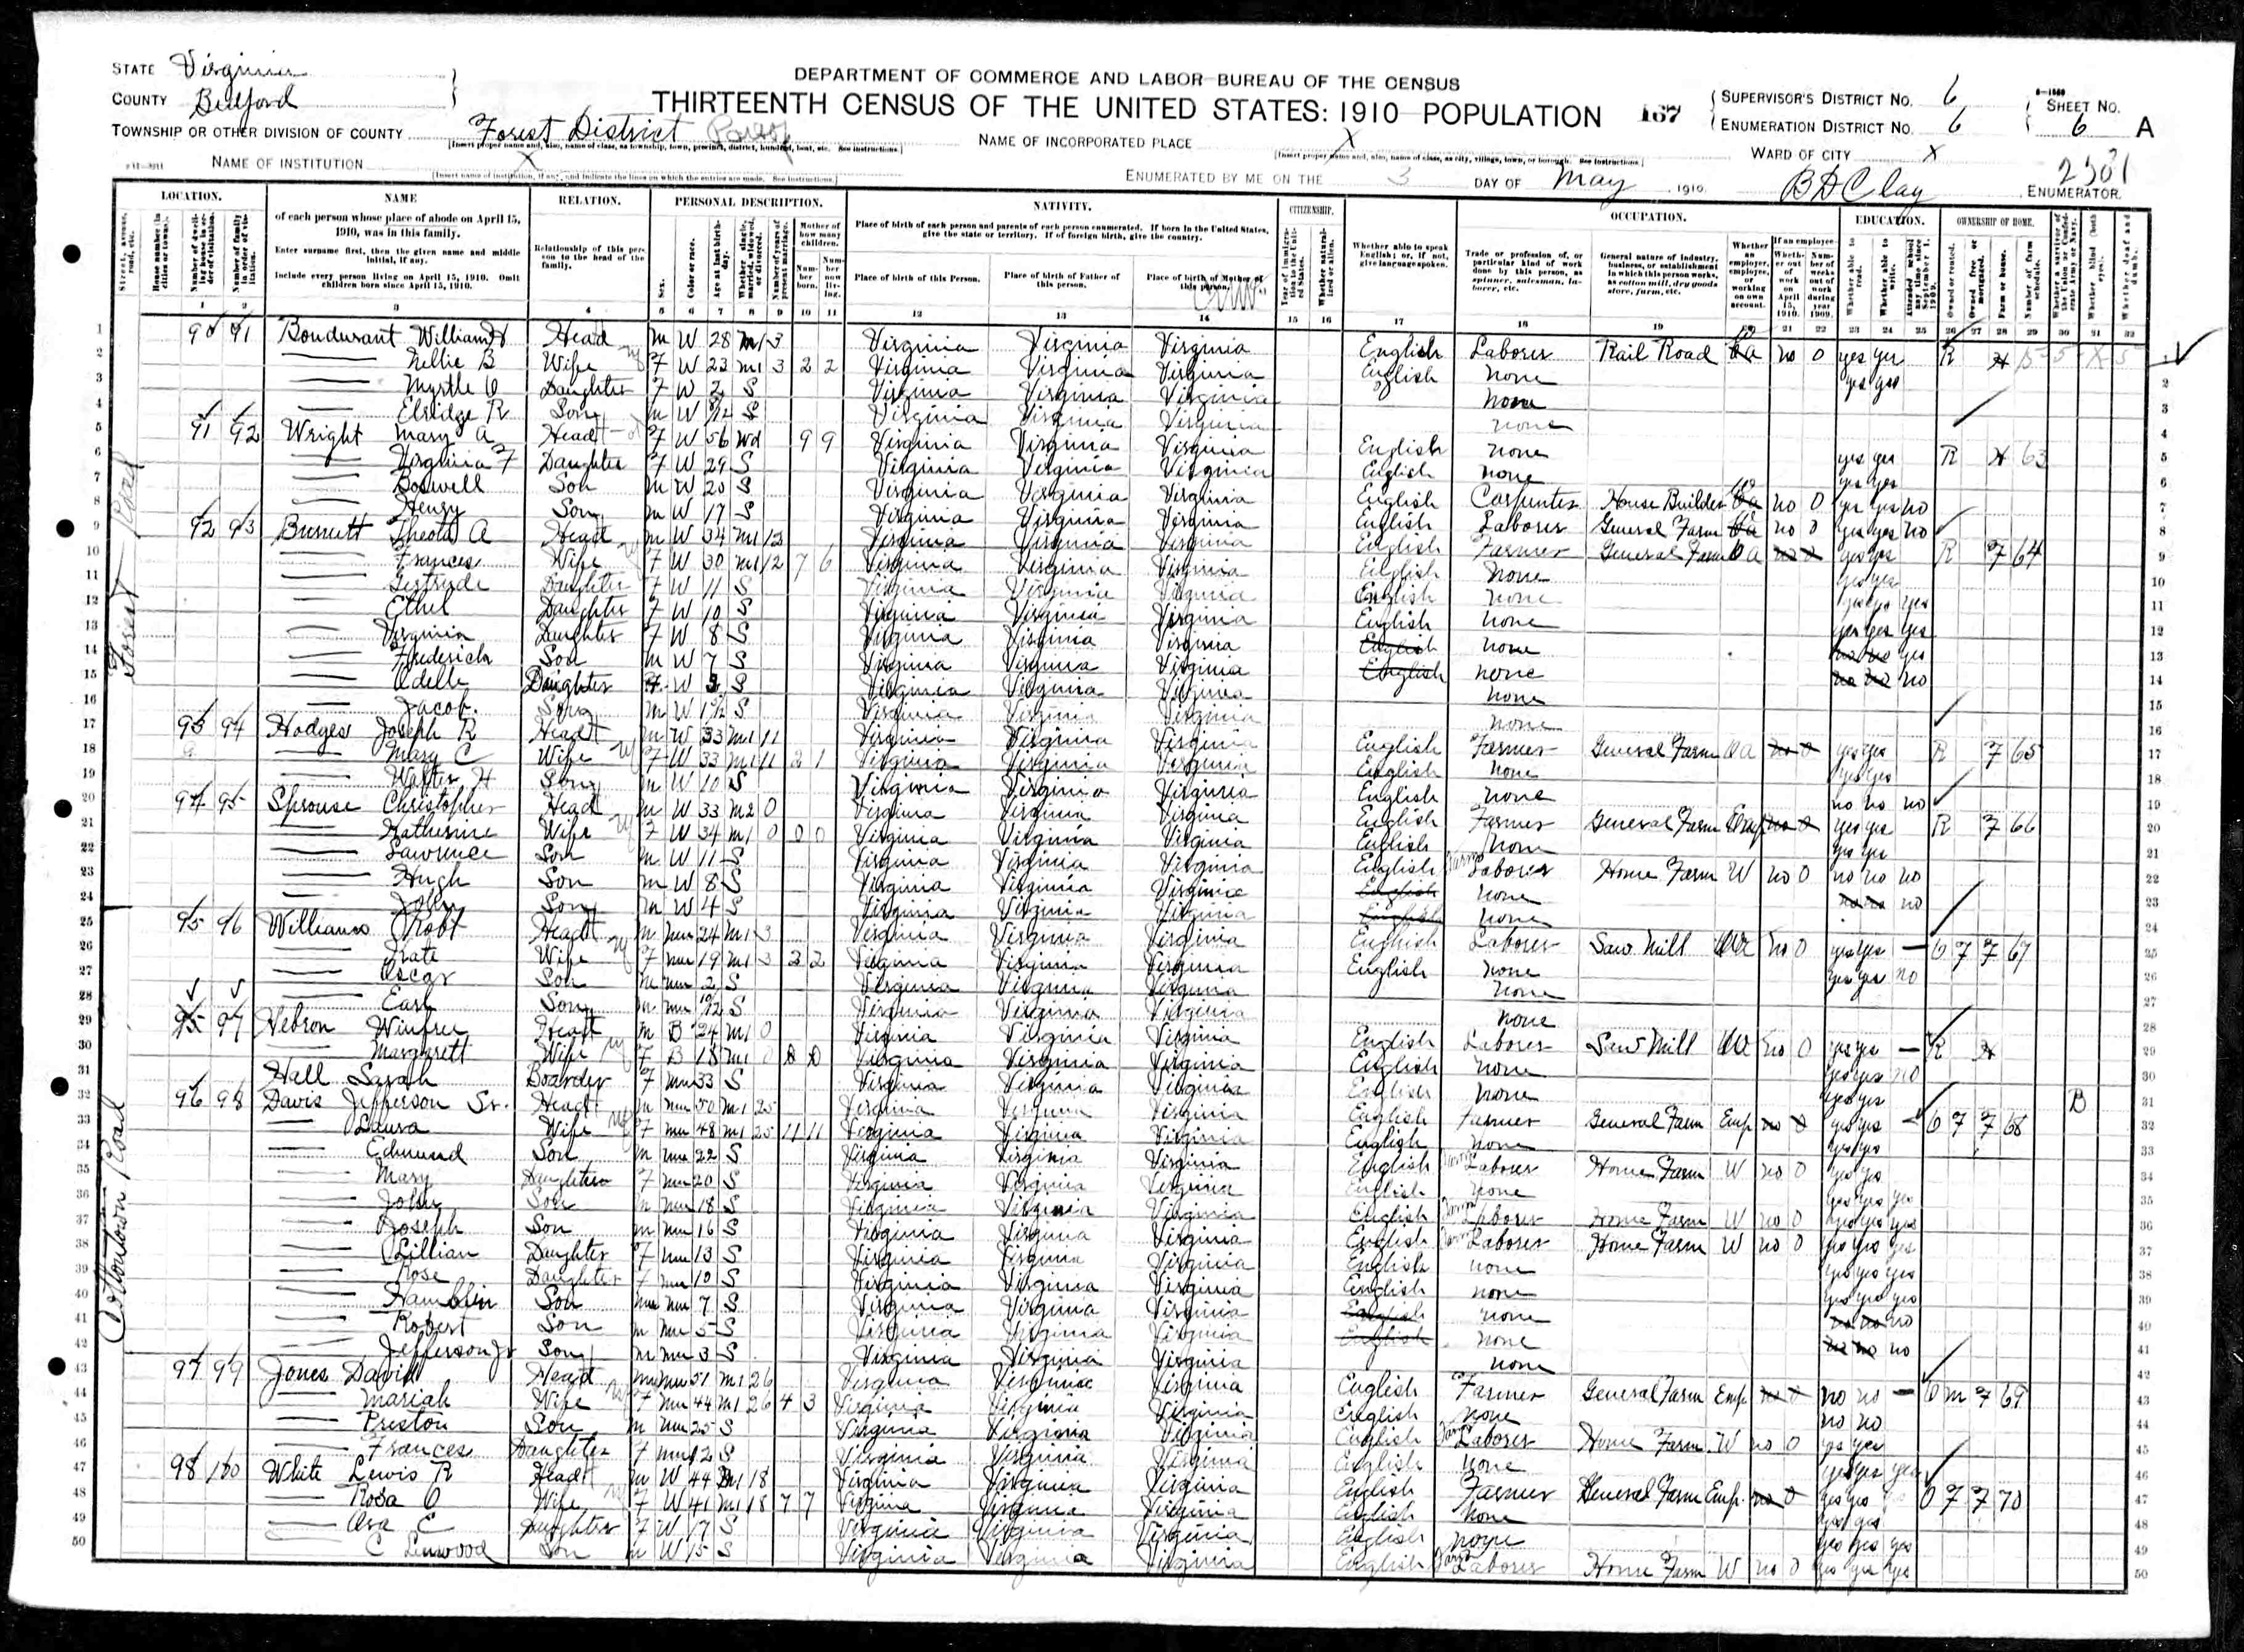 STATE Virginia
COUNTY Bedford
TOWNSHIP OR OTHER DIVISION OF COUNTY Forest District
DEPARTMENT OF COMMERCE AND LABOR-BUREAU OF THE CENSUS
THIRTEENTH CENSUS OF THE UNITED STATES: 1910 POPULATION
167
SUPERVISOR'S DISTRICT No. 6
ENUMERATION DISTRICT No. 6
SHEET No. 6 A
NAME OF INSTITUTION X
NAME OF INCORPORATED PLACE X
WARD OF CITY X
ENUMERATED BY ME ON THE 3 DAY OF May, 1910.
B D Clay ENUMERATOR.
LOCATION. NAME RELATION. PERSONAL DESCRIPTION. NATIVITY. CITIZENSHIP. OCCUPATION. EDUCATION. OWNERSHIP OF HOME.
of each person whose place of abode on April 15, 1910, was in this family.
Enter surname first, then the given name and middle initial, if any.
Include every person living on April 15, 1910. Omit children born since April 15, 1910.
Relationship of this person to the head of the family.
Place of birth of each person and parents of each person enumerated. If born in the United States, give the state or territory. If of foreign birth, give the country.
Place of birth of this Person. Place of birth of Father of this person. Place of birth of Mother of this person.
Forest Road
Cottontown Road
1 91 Bondurant William H Head M W 28 M1 3 Virginia Virginia Virginia English Laborer Rail Road no 0 yes yes R
2 Nellie B Wife F W 23 M1 3 2 2 Virginia Virginia Virginia English None yes yes
3 Myrtle O Daughter F W 2 S Virginia Virginia Virginia None
4 Elridge R Son M W S Virginia Virginia Virginia None
5 91 92 Wright Mary A Head F W 56 Wd 9 9 Virginia Virginia Virginia English None yes yes R 63
6 Virginia F Daughter F W 29 S Virginia Virginia Virginia English None yes yes
7 Boswell Son M W 20 S Virginia Virginia Virginia English Carpenter House Builder no 0 yes yes no
8 Henry Son M W 17 S Virginia Virginia Virginia English Laborer General Farm no 0 yes yes no
9 92 93 Burnett A Head M W 34 M1 12 Virginia Virginia Virginia English Farmer General Farm O a yes yes R F 64
10 Frances Wife F W 30 M1 12 7 6 Virginia Virginia Virginia English None yes yes
11 Gertrude Daughter F W 11 S Virginia Virginia Virginia English None yes yes yes
12 Ethel Daughter F W 10 S Virginia Virginia Virginia English None yes yes yes
13 Virginia Daughter F W 8 S Virginia Virginia Virginia English None no no yes
14 Frederick Son M W 7 S Virginia Virginia Virginia English None no no no
15 Adelle Daughter F W 3 S Virginia Virginia Virginia None
16 Jacob Son M W S Virginia Virginia Virginia None
17 93 94 Hodges Joseph R Head M W 33 M1 11 Virginia Virginia Virginia English Farmer General Farm O a yes yes R F 65
18 Mary C Wife F W 33 M1 11 2 1 Virginia Virginia Virginia English None yes yes
19 Walter H Son M W 10 S Virginia Virginia Virginia English None no no no
20 94 95 Sprouse Christopher Head M W 33 M2 0 Virginia Virginia Virginia English Farmer General Farm Emp yes yes R F 66
21 Katherine Wife F W 34 M1 0 0 0 Virginia Virginia Virginia English None yes yes
22 Lawrence Son M W 11 S Virginia Virginia Virginia English Farm Laborer Home Farm W no 0 no no no
23 Hugh Son M W 8 S Virginia Virginia Virginia English None no no no
24 John Son M W 4 S Virginia Virginia Virginia English None
25 95 96 Williams Robt Head M Mu 24 M1 3 Virginia Virginia Virginia English Laborer Saw Mill no 0 yes yes O F F 67
26 Kate Wife F Mu 19 M1 3 2 2 Virginia Virginia Virginia English None yes yes no
27 Oscar Son M Mu 2 S Virginia Virginia Virginia None
28 Earl Son M Mu 10/12 S Virginia Virginia Virginia None
29 95 97 Hebron Winfree Head M B 24 M1 0 Virginia Virginia Virginia English Laborer Saw Mill no 0 yes yes R
30 Margarett Wife F B 18 M1 0 0 0 Virginia Virginia Virginia English None yes yes no
31 Hall Sarah Boarder F Mu 33 S Virginia Virginia Virginia English None yes yes
32 96 98 Davis Jefferson Sr. Head M Mu 50 M1 25 Virginia Virginia Virginia English Farmer General Farm Emp no 0 yes yes O F F 68 B
33 Laura Wife F Mu 48 M1 25 11 11 Virginia Virginia Virginia English None yes yes
34 Edmund Son M Mu 22 S Virginia Virginia Virginia English Farm Laborer Home Farm W no 0 yes yes
35 Mary Daughter F Mu 20 S Virginia Virginia Virginia English None yes yes yes
36 John Son M Mu 18 S Virginia Virginia Virginia English Farm Laborer Home Farm W no 0 yes yes yes
37 Joseph Son M Mu 16 S Virginia Virginia Virginia English Farm Laborer Home Farm W no 0 yes yes yes
38 Lillian Daughter F Mu 13 S Virginia Virginia Virginia English None yes yes yes
39 Rose Daughter F Mu 10 S Virginia Virginia Virginia English None yes yes yes
40 Hamblin Son M Mu 7 S Virginia Virginia Virginia English None no no no
41 Robert Son M Mu 5 S Virginia Virginia Virginia English None no no no
42 Jefferson Jr Son M Mu 3 S Virginia Virginia Virginia None
43 97 99 Jones David Head M Mu 51 M1 26 Virginia Virginia Virginia English Farmer General Farm Emp. no 0 no no O M F 69
44 Mariah Wife F Mu 44 M1 26 4 3 Virginia Virginia Virginia English None no no
45 Preston Son M Mu 25 S Virginia Virginia Virginia English Farm Laborer Home Farm W no 0 yes yes
46 Frances Daughter F Mu 12 S Virginia Virginia Virginia English None yes yes yes
47 98 100 White Lewis R Head M W 44 M1 18 Virginia Virginia Virginia English Farmer General Farm Emp. no 0 yes yes O F F 70
48 Rosa O Wife F W 41 M1 18 7 7 Virginia Virginia Virginia English None yes yes
49 Ava E Daughter F W 17 S Virginia Virginia Virginia English None yes yes yes
50 C Linwood Son M W 15 S Virginia Virginia Virginia English Farm Laborer Home Farm W no 0 yes yes yes